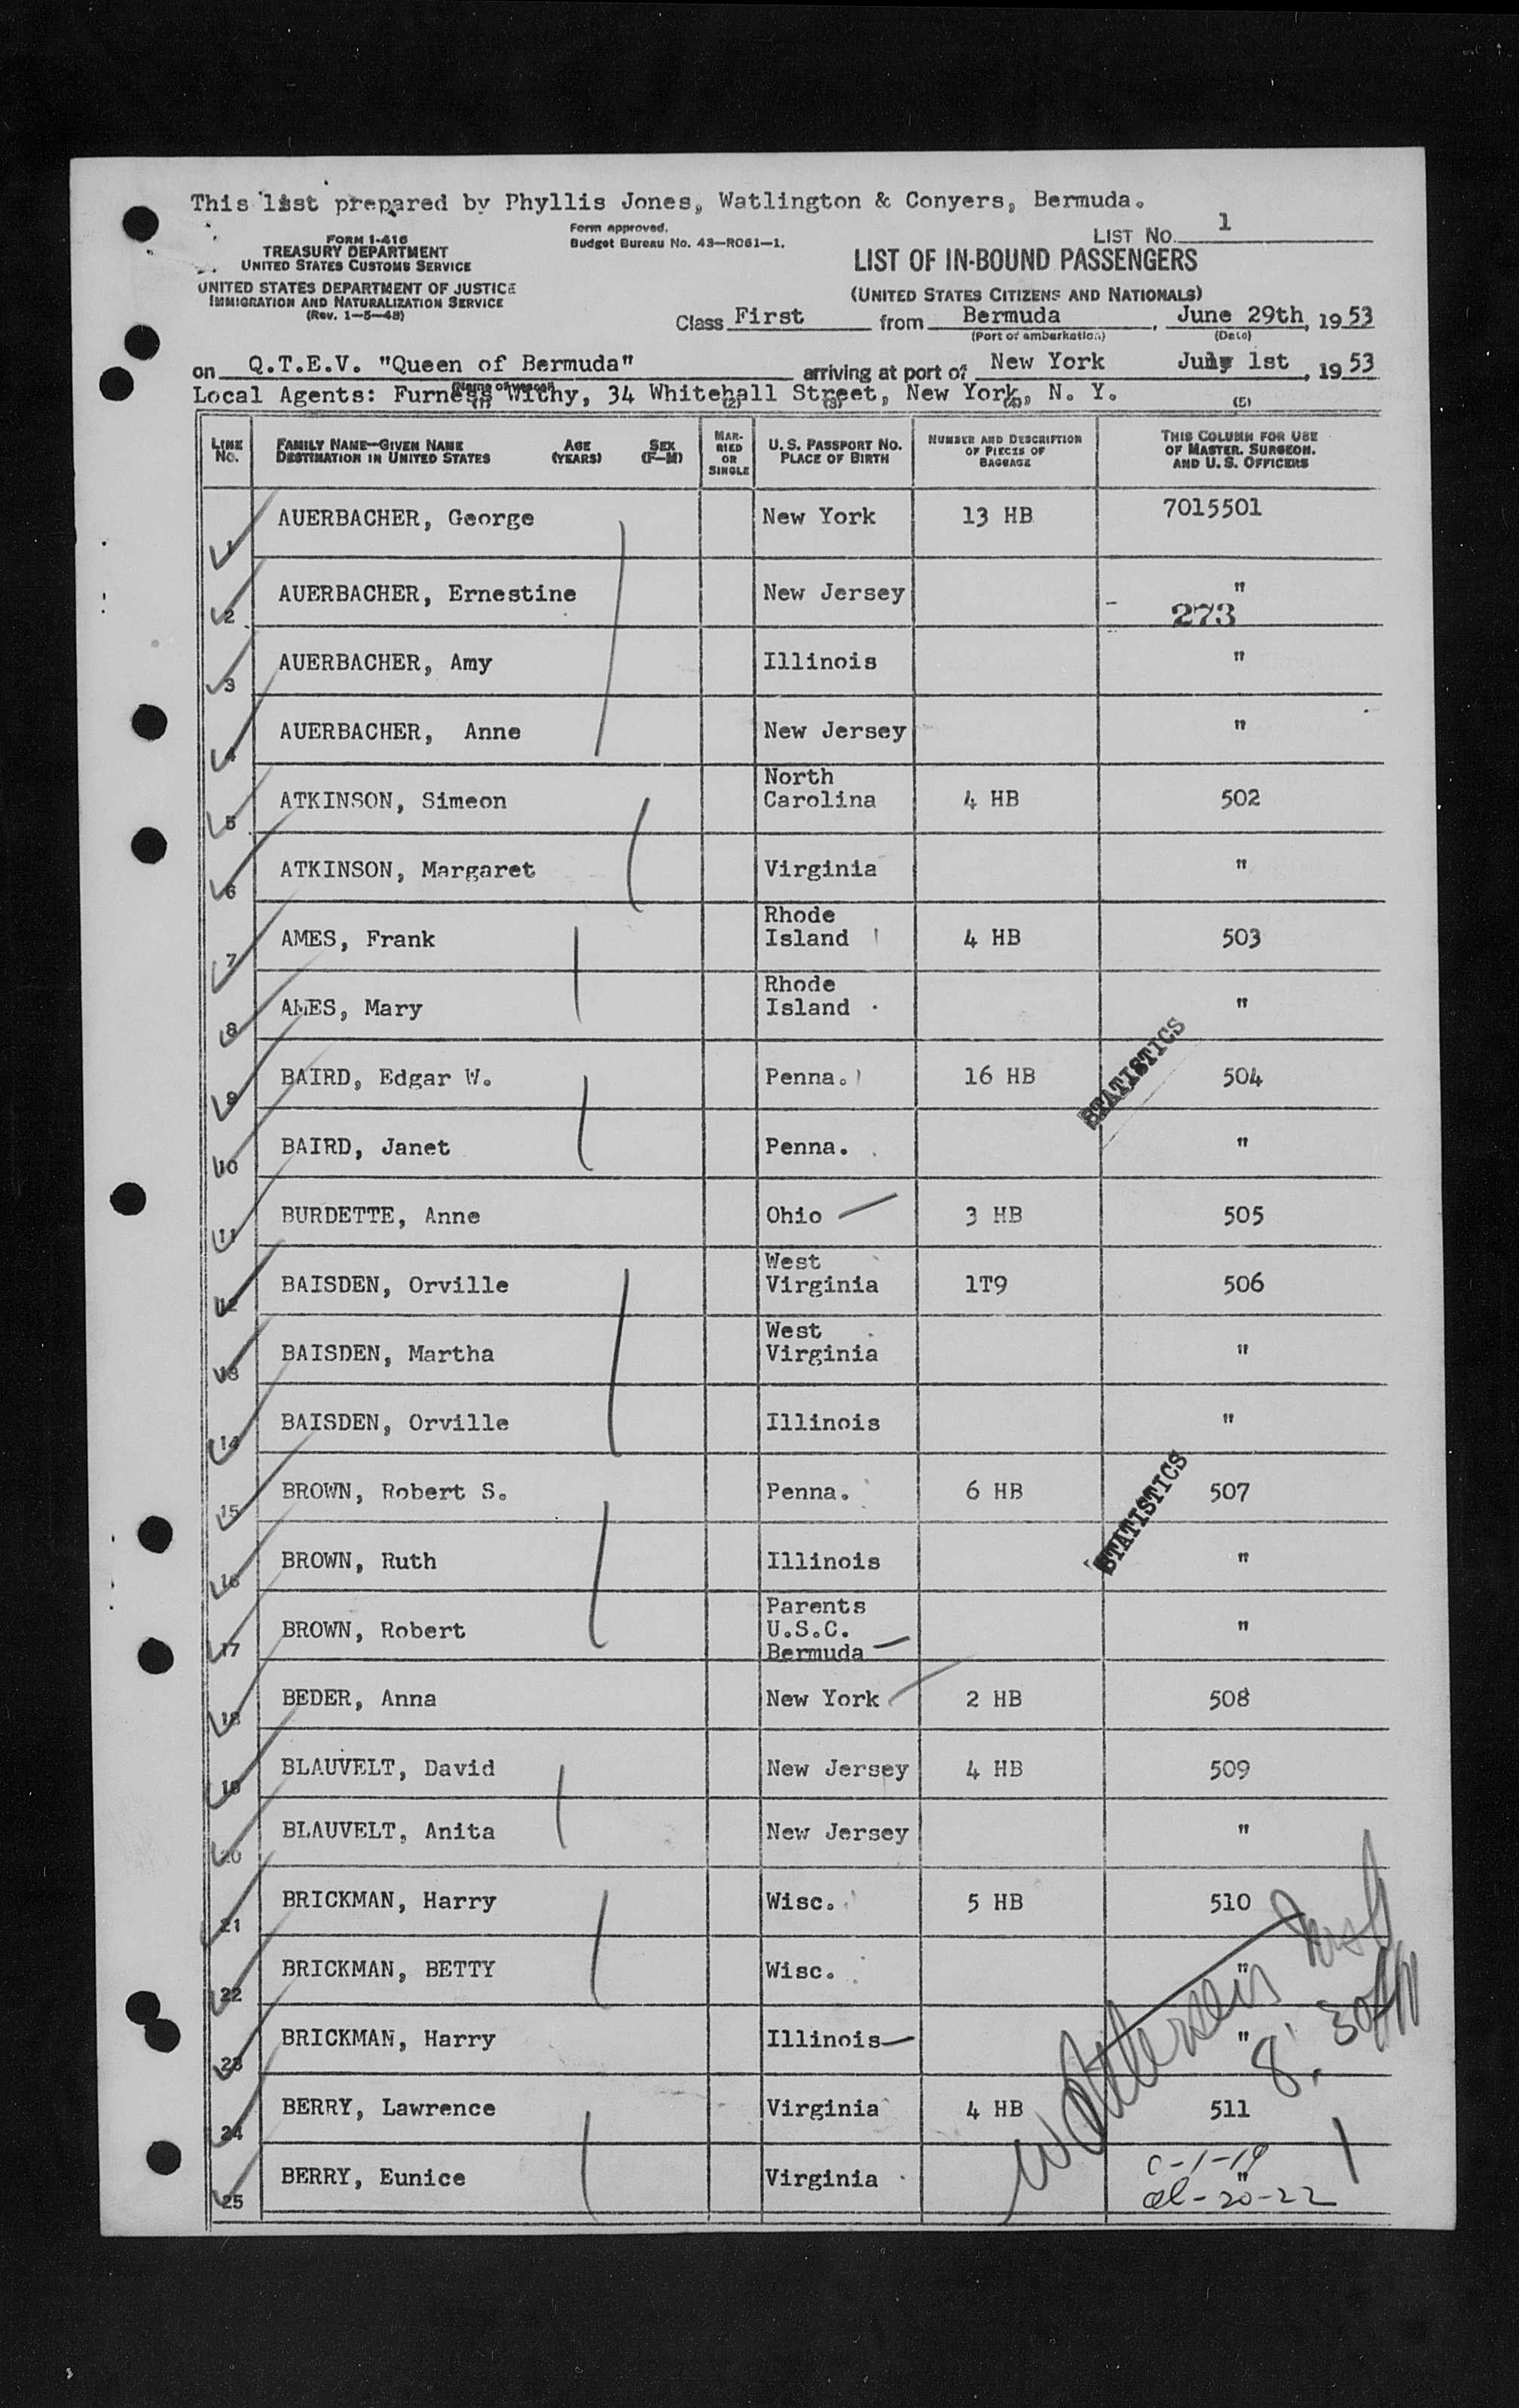 This list prepared by Phyllis Jones, Watlington & Conyers, Bermuda.
FORM I-416
TREASURY DEPARTMENT
UNITED STATES CUSTOMS SERVICE
UNITED STATES DEPARTMENT OF JUSTICE
IMMIGRATION AND NATURALIZATION SERVICE
(Rev. 1-5-48)
Form approved.
Budget Bureau No. 43-R061-1.
LIST NO. 1
LIST OF IN-BOUND PASSENGERS
(UNITED STATES CITIZENS AND NATIONALS)
Class First from Bermuda, June 29th, 1953
(Port of embarkation) (Date)
on Q.T.E.V. "Queen of Bermuda" arriving at port of New York July 1st, 1953
(Name of vessel)
Local Agents: Furness Withy, 34 Whitehall Street, New York, N. Y.
(1) (2) (3) (4) (5)
LINE NO. FAMILY NAME—GIVEN NAME DESTINATION IN UNITED STATES AGE (YEARS) SEX (F-M) MARRIED OR SINGLE U. S. PASSPORT NO. PLACE OF BIRTH NUMBER AND DESCRIPTION OF PIECES OF BAGGAGE THIS COLUMN FOR USE OF MASTER, SURGEON, AND U. S. OFFICERS
1 AUERBACHER, George New York 13 HB 7015501
2 AUERBACHER, Ernestine New Jersey "
273
3 AUERBACHER, Amy Illinois "
4 AUERBACHER, Anne New Jersey "
5 ATKINSON, Simeon North Carolina 4 HB 502
6 ATKINSON, Margaret Virginia "
7 AMES, Frank Rhode Island 4 HB 503
8 AMES, Mary Rhode Island "
STATISTICS
9 BAIRD, Edgar W. Penna. 16 HB 504
10 BAIRD, Janet Penna. "
11 BURDETTE, Anne Ohio 3 HB 505
12 BAISDEN, Orville West Virginia 1T9 506
13 BAISDEN, Martha West Virginia "
14 BAISDEN, Orville Illinois "
15 BROWN, Robert S. Penna. 6 HB 507
STATISTICS
16 BROWN, Ruth Illinois "
17 BROWN, Robert Parents U.S.C. Bermuda "
18 BEDER, Anna New York 2 HB 508
19 BLAUVELT, David New Jersey 4 HB 509
20 BLAUVELT, Anita New Jersey "
21 BRICKMAN, Harry Wisc. 5 HB 510
22 BRICKMAN, BETTY Wisc. "
23 BRICKMAN, Harry Illinois "
8.30
24 BERRY, Lawrence Virginia 4 HB 511
25 BERRY, Eunice Virginia "
c-1-19
al-20-22